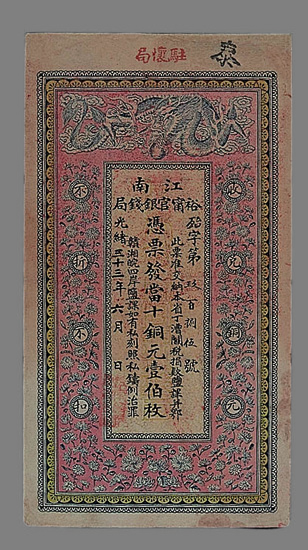 駐懷局
江南
裕甯官銀錢局
憑票發當十銅元壹伯枚
玖百捌伍號
此票准交納本省丁漕關稅捐餘鹽課並
贛湘皖四岸鹽課如有私刻照私鑄例治罪
光緒三十三年六月日
收兌銅元
不折不扣